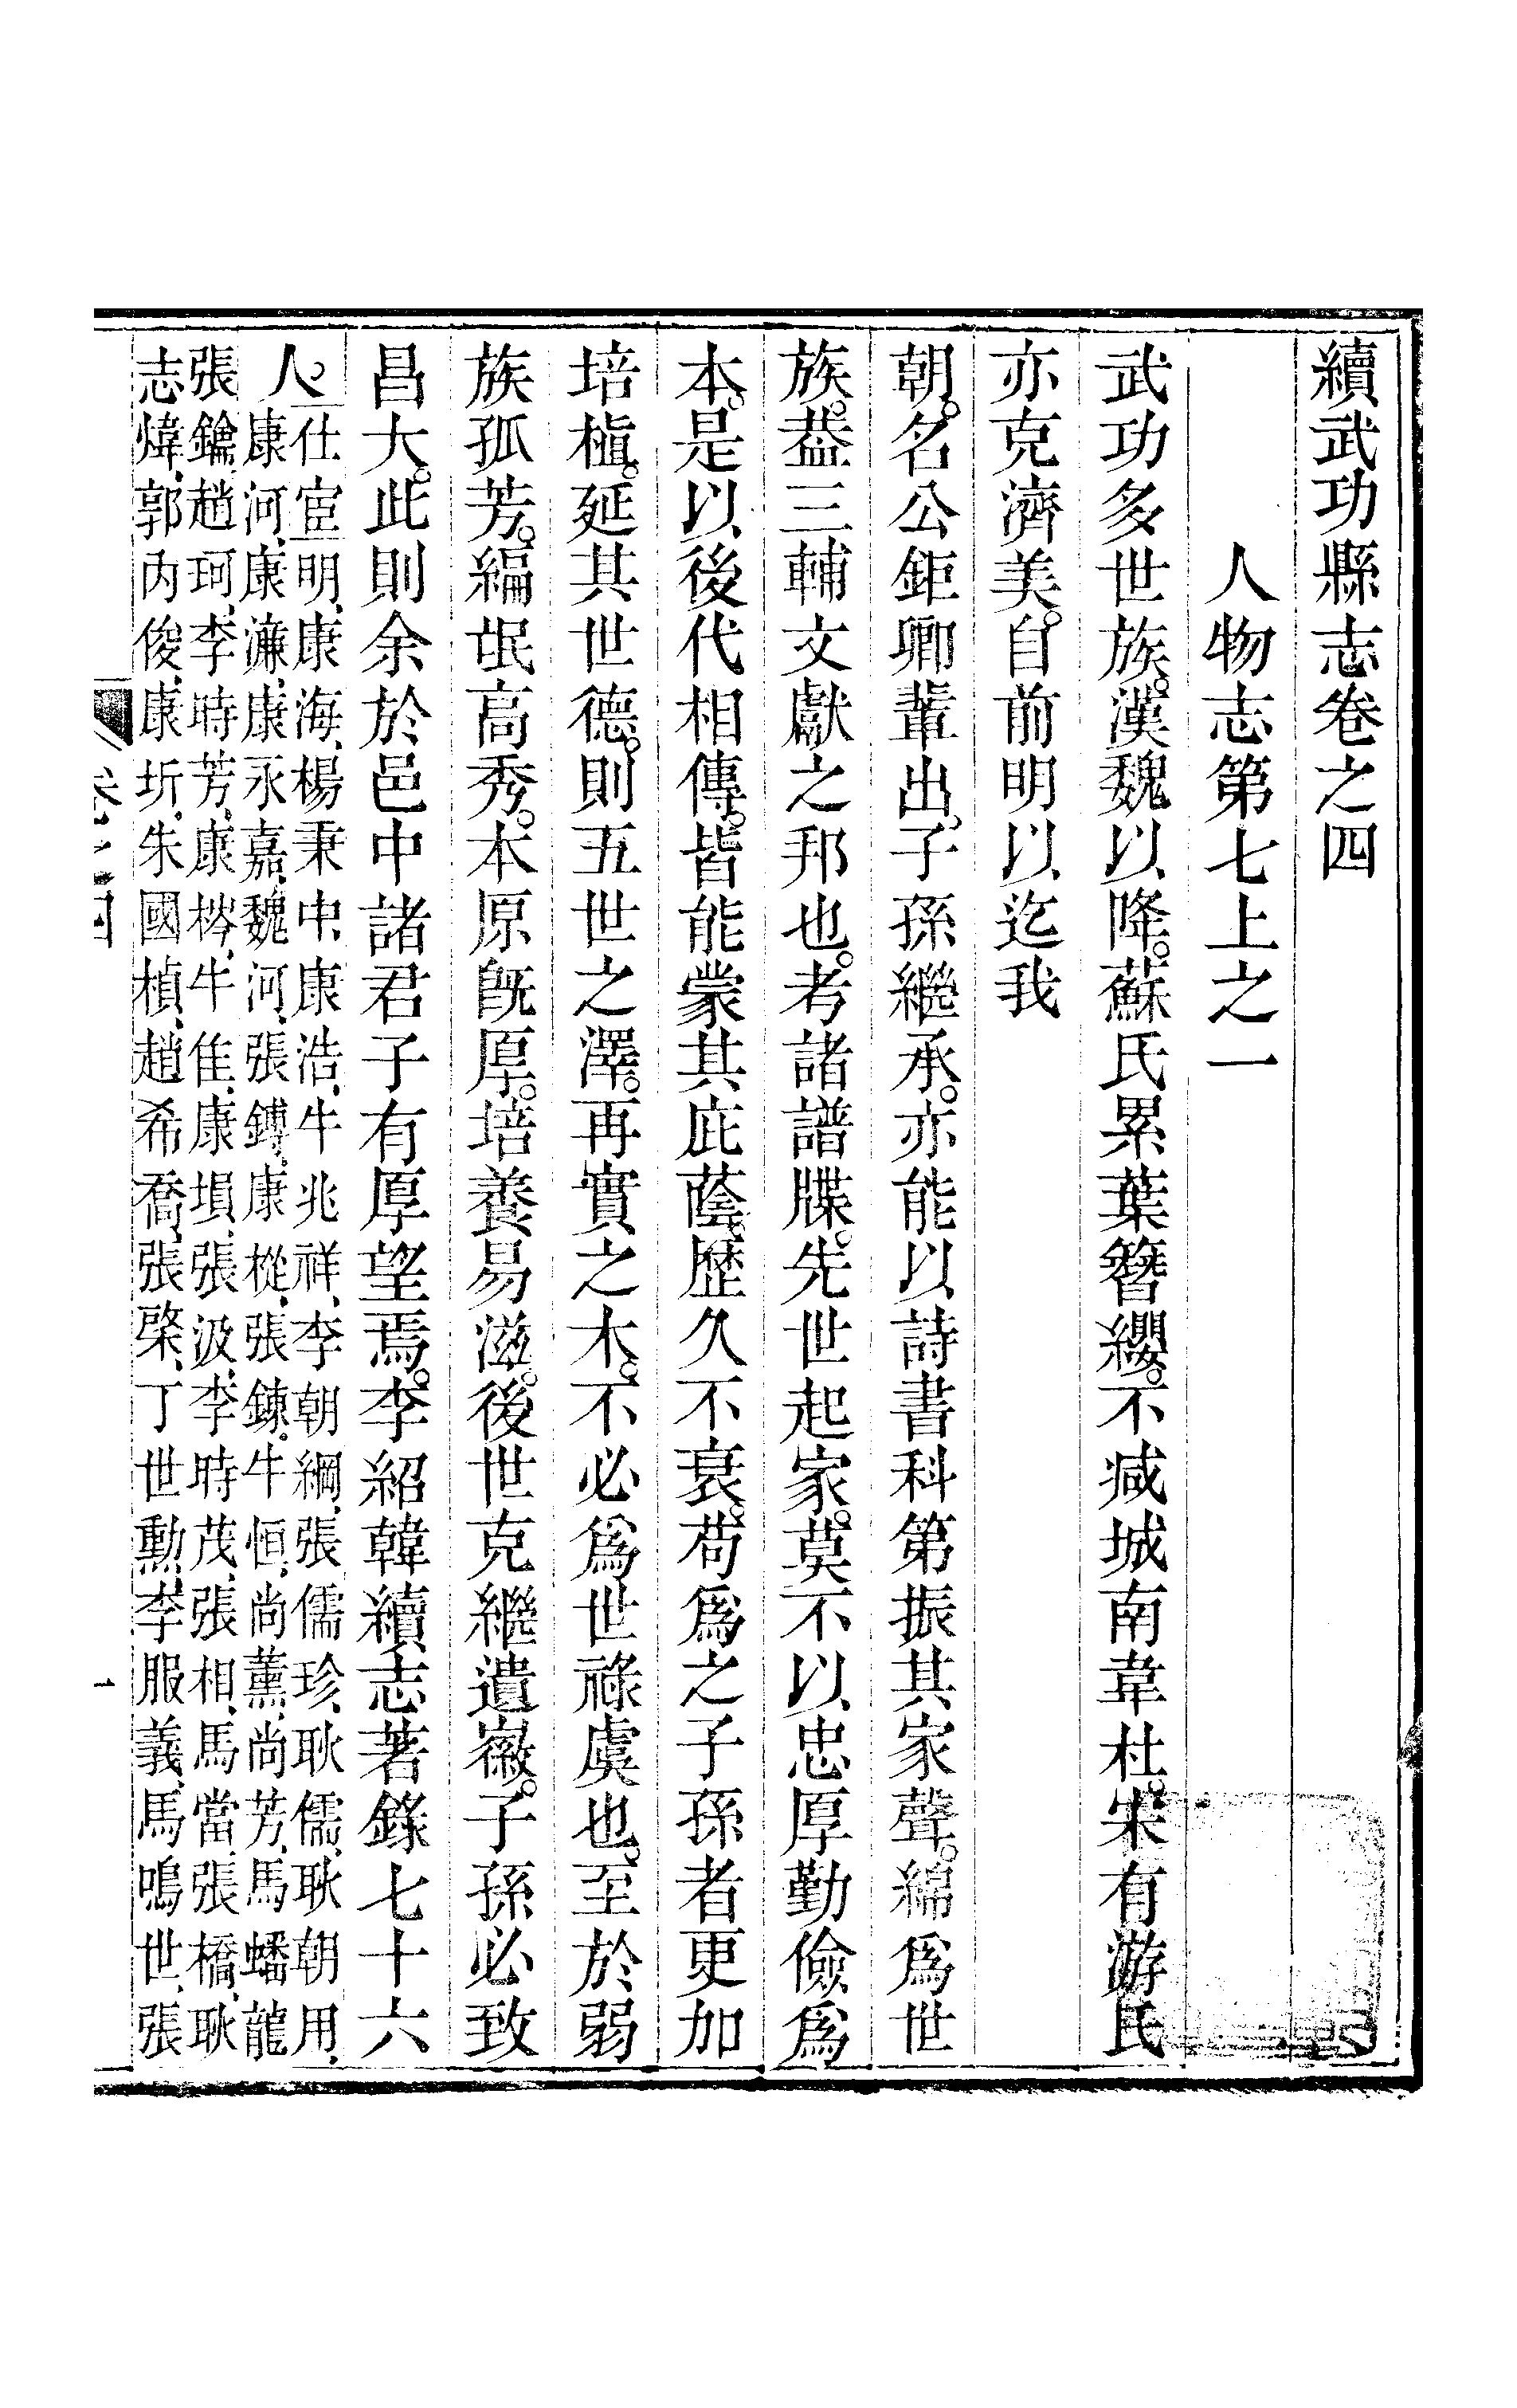 續武功縣志卷之四
人物志第七上之一
武功多世族。漢魏以降。蘇氏累葉簪纓。不減城南韋杜。宋有游氏
亦克濟美。自前明以迄我
朝。名公鉅卿輩出、子孫繼承。亦能以詩書科第振其家聲。綿爲世
族。葢三輔文獻之邦也。考諸譜牒。先世起家。莫不以忠厚勤儉爲
本。是以後代相傳。皆能蒙其庇蔭。歷久不衰。苟爲之子孫者更加
培植。延其世德。則五世之澤。再實之木。不必爲世祿虞也。至於弱
族孤芳。編氓高秀。本原旣厚。培養易滋。後世克繼遺徽。子孫必致
昌大。此則余於邑中諸君子有厚望焉。李紹韓續志著錄七十六
人
仕宦明、康海、楊秉中、康浩、牛兆祥、李朝綱、張儒珍、耿儒、耿朝用、
康河、康濂、康永嘉、魏河、張鏄、康樅、張鍊。牛恒、尚薰、尚芳、馬蟠龍
張鑰、趙珂、李時芳、康梣、牛隹、康塤、張汲、李時茂、張相、馬當、張橋、耿
志煒、郭内俊、康圻、朱國楨、趙希喬、張棨、丁世勳、李服義、馬鳴世、張
卷之四
一